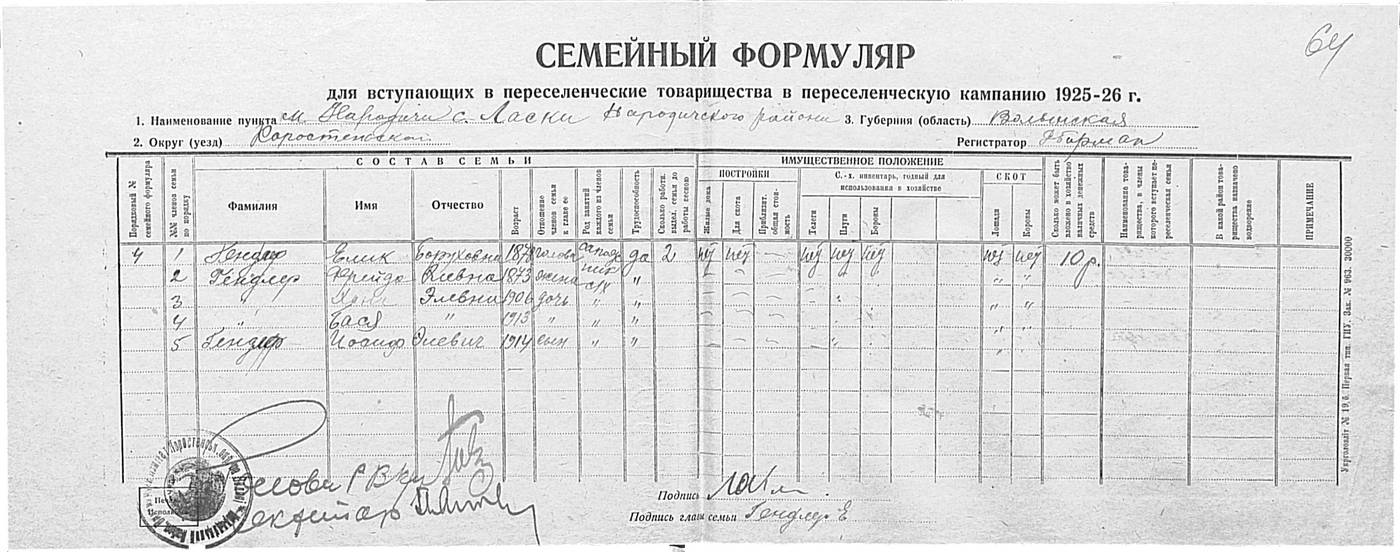 64
СЕМЕЙНЫЙ ФОРМУЛЯР
для вступающих в переселенческие товарищества в переселенческую кампанию 1925-26 г.
1. Наименование пункта м. Народичи с. Ласки Народичского района 3. Губерния (область) Волынская
2. Округ (уезд) Коростенской Регистратор
СОСТАВ СЕМЬИ ИМУЩЕСТВЕННОЕ ПОЛОЖЕНИЕ
Порядковый № семейного формуляра
№№ членов семьи по порядку
Фамилия
Имя
Отчество
Возраст
Отношение членов семьи к главе ее
Род занятий каждого из членов семьи
Трудоспособность
Сколько работн. выдел. семья до работы семеною
ПОСТРОЙКИ
Жилые дома
Для скота
Приблизит. общая стоимость
С.-х. инвентарь, годный для использования в хозяйстве
Телеги
Плуги
Бороны
СКОТ
Лошади
Коровы
Сколько может быть вложено в хозяйство наличных денежных средств
Наименование товарищества, в члены которого вступает переселенческая семья
В какой район товарищества назначено водворение
ПРИМЕЧАНИЕ
4 1 Гендлер Елик Боруховна 1878 голова да 2 неӱ неӱ — неӱ неӱ неӱ неӱ неӱ 10 р.
2 Гендлер Фрейда 1873 жена "
3 " Элевна 1906 дочь " "
4 " Бася " 1913 " " "
5 Гендлер Иосиф Элевич 1914 сын " "
Подпись
Подпись главы семьи Гендлер Е
Голова РВК
Секретар
Укрголовліт № 19.6. Первая тип. ГИУ. Зак. № 963. 30000